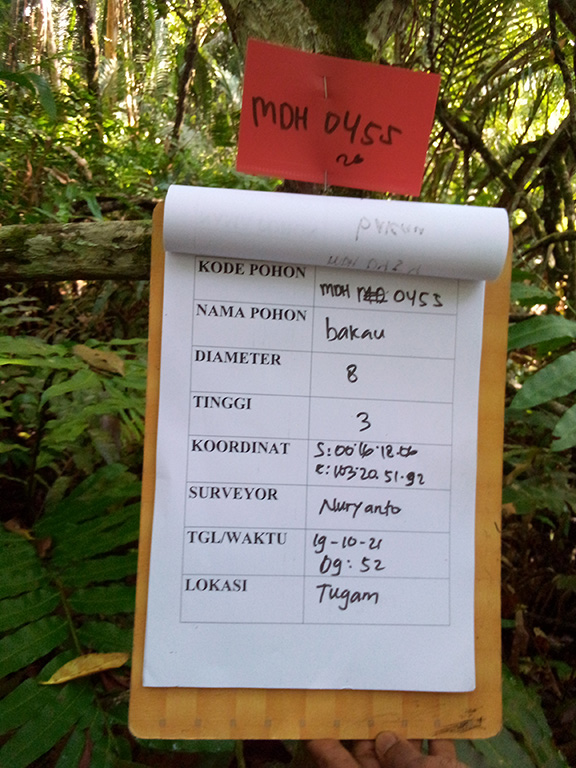 MDH 0455
26
KODE POHON MDH 0455
NAMA POHON bakau
DIAMETER 8
TINGGI 3
KOORDINAT S:00°16'12.06
E:103.20.51.92
SURVEYOR Nuryanto
TGL/WAKTU 19-10-21
09:52
LOKASI Tugam